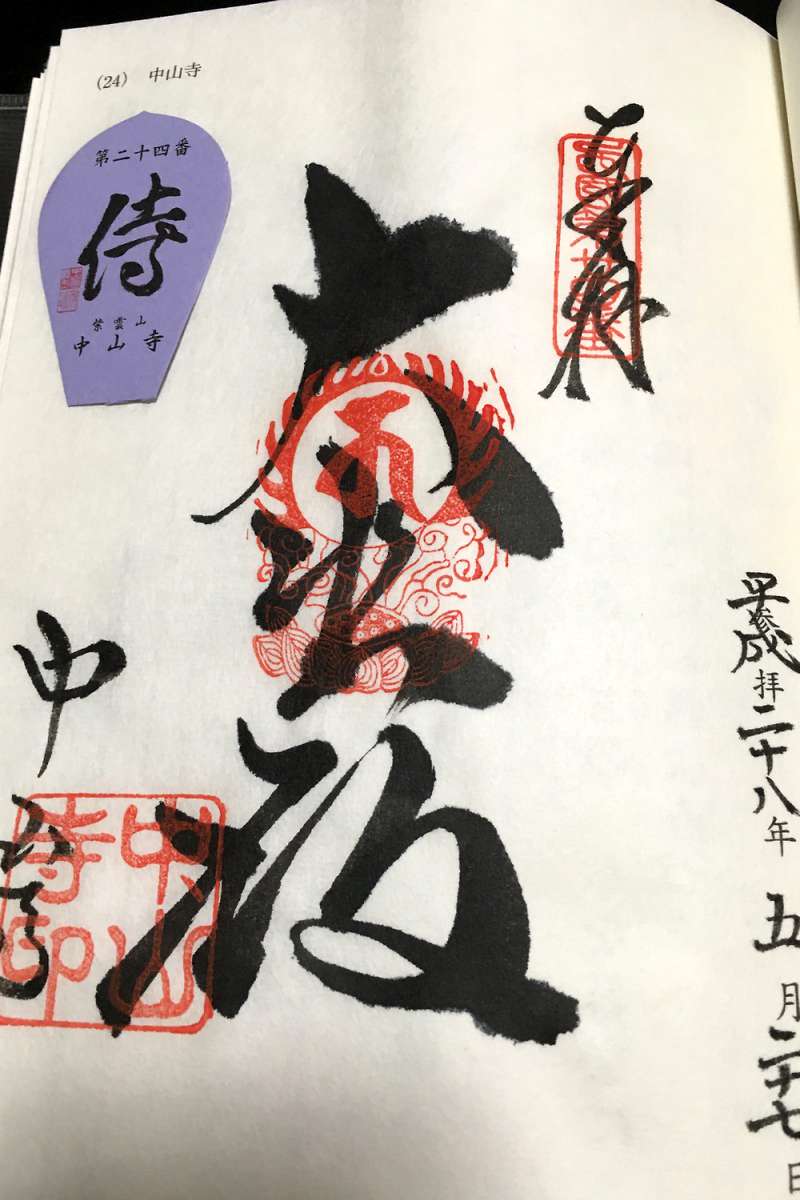 (24) 中山寺
第二十四番
侍
紫雲山
中山寺
西國第廿四番
大悲殿
中山寺
中山寺印
平成参拝二十八年 五月二十七日